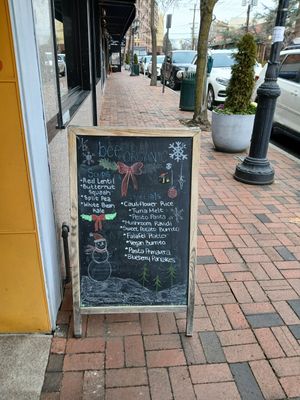 bee ORGANIC
Red Lentil
Butternut
Squash
Split Pea
White Bean
Kale
Cauliflower Rice
Tuna Melt
Pesto Pasta
Mushroom Ravioli
Sweet Potato Burrito
Falafel Platter
Vegan Burrito
Pasta Primavera
Blueberry Pancakes